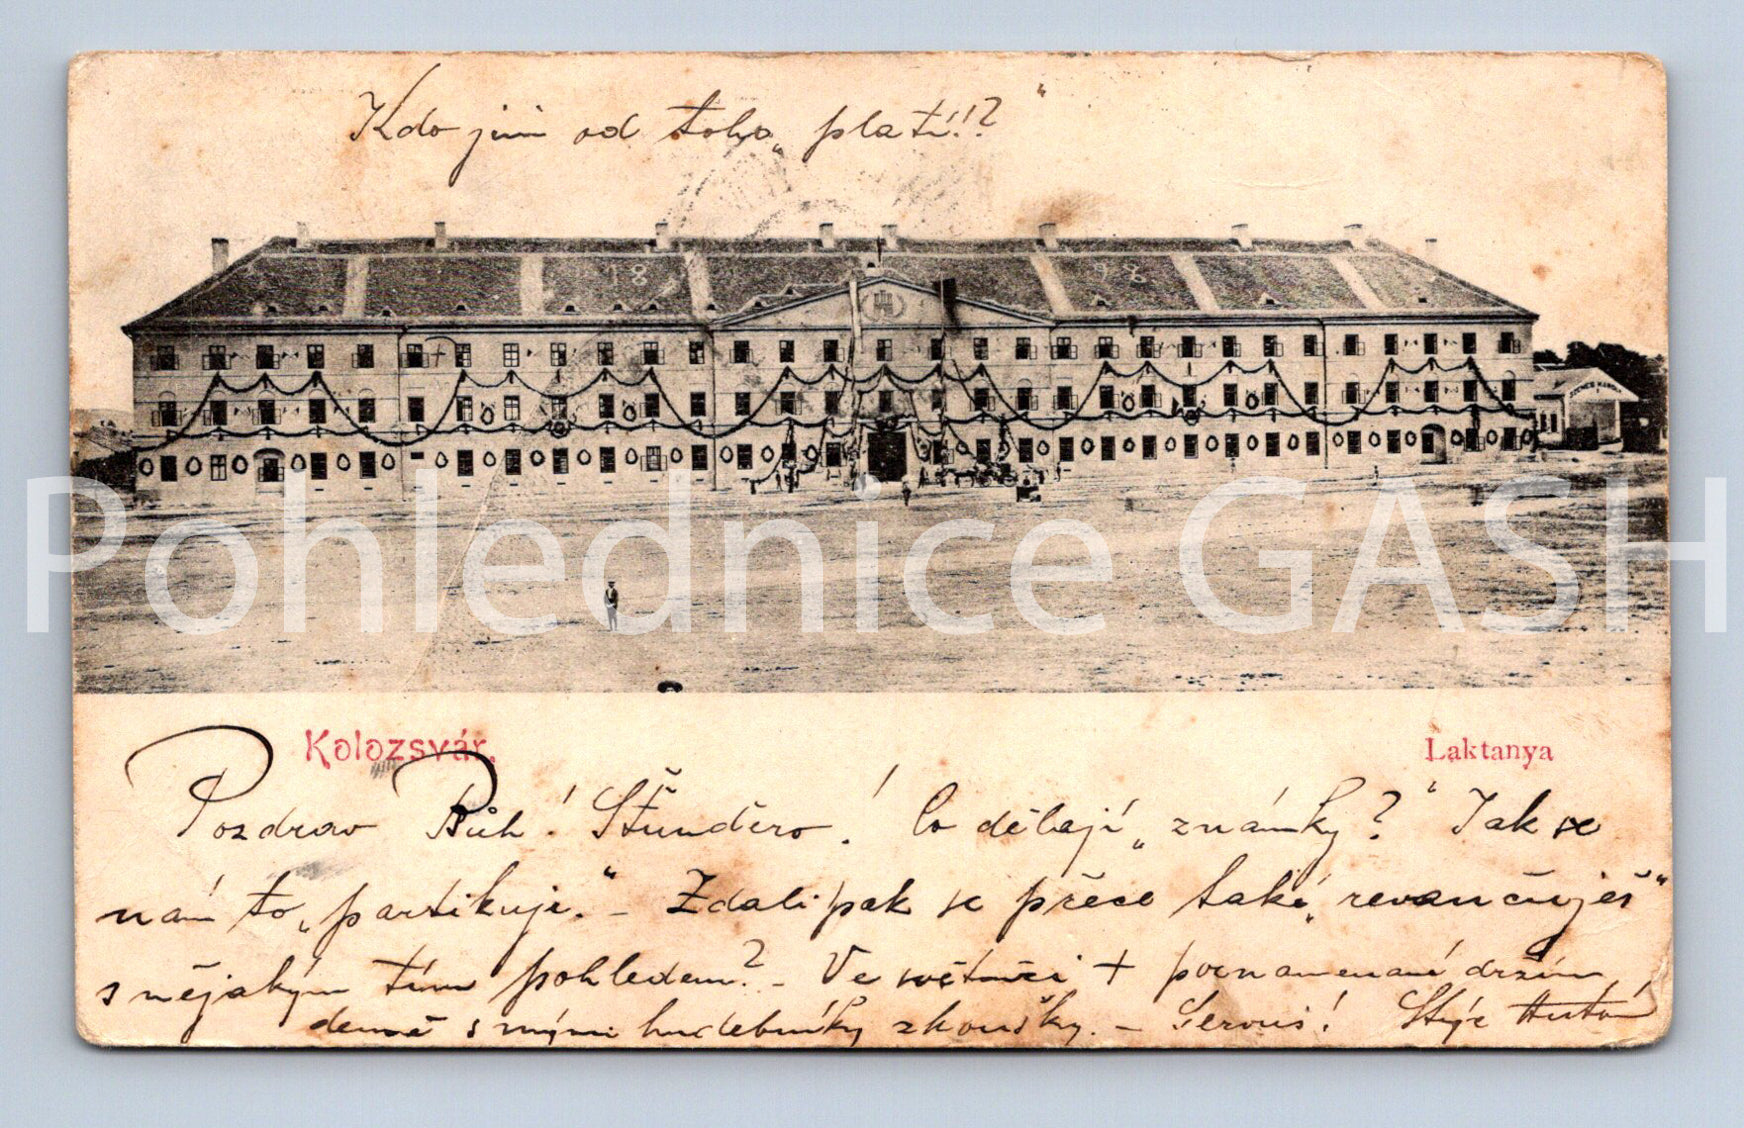 Kdo jim od toho „platí!!?“
18 98
Pohlednice GASH
Kolozsvár.
Laktanya
Pozdrav Bůh! Štunděro! Co dělají „známky?“ Jak se
nám to „partikuje.“ – Zdali pak se přece také „revančuješ“
s nějakým tím pohledem? – Ve světnici + poznamenané držím
denně s mými hudebníky zkoušky. – Servus! Strýc